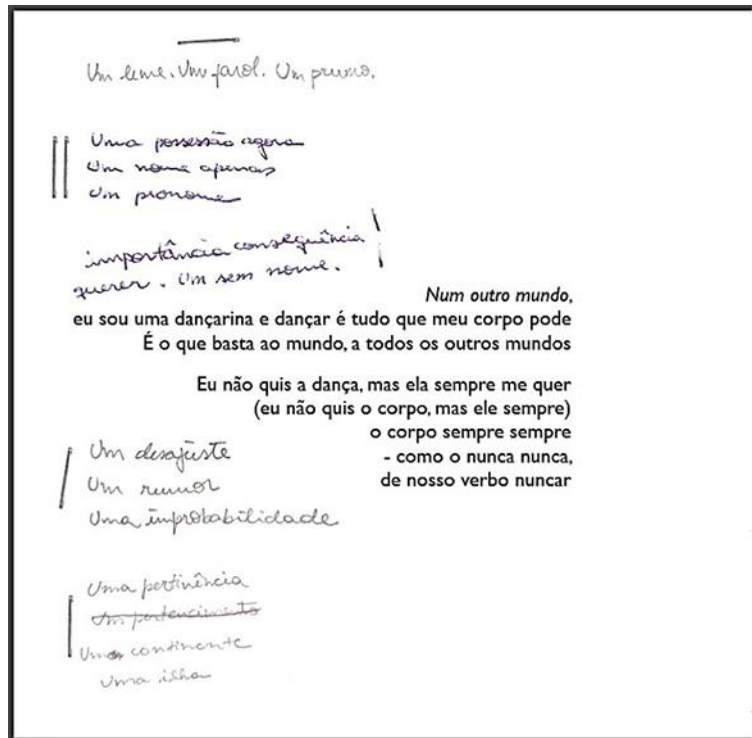 Um leme. Um farol. Um prumo.
Uma possessão agora
Um nome apenas
Um pronome
importância consequência
querer. Um sem nome.
Num outro mundo,
eu sou uma dançarina e dançar é tudo que meu corpo pode
É o que basta ao mundo, a todos os outros mundos
Eu não quis a dança, mas ela sempre me quer
(eu não quis o corpo, mas ele sempre)
o corpo sempre sempre
- como o nunca nunca,
de nosso verbo nuncar
Um desajuste
Um rumor
Uma improbabilidade
Uma pertinência
Um pertencimento
Um continente
Uma ilha